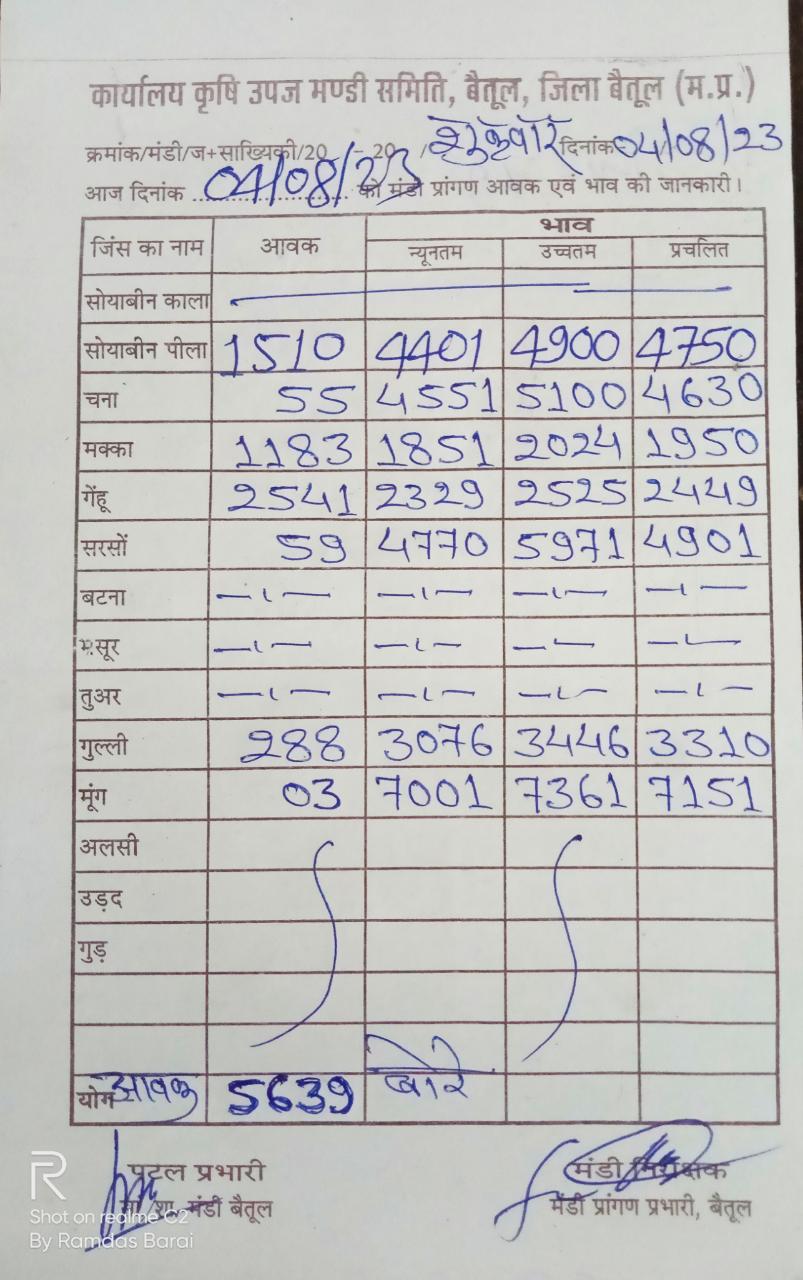 कार्यालय कृषि उपज मण्डी समिति, बैतूल, जिला बैतूल (म.प्र.)
क्रमांक/मंडी/ज+साख्यिकी/20 - 20 / शुक्रवार दिनांक 04/08/23
आज दिनांक 04/08/23 को मंडी प्रांगण आवक एवं भाव की जानकारी।
जिंस का नाम आवक भाव
न्यूनतम उच्चतम प्रचलित
सोयाबीन काला
सोयाबीन पीला 1510 4401 4900 4750
चना 55 4551 5100 4630
मक्का 1183 1851 2024 1950
गेंहू 2541 2329 2525 2449
सरसों 59 4770 5971 4901
बटना -ι- -ι- -ι- -ι-
मसूर -ι- -ι- -ι- -ι-
तुअर -ι- -ι- -ι- -ι-
गुल्ली 288 3076 3446 3310
मूंग 03 7001 7361 7151
अलसी
उड़द
गुड़
योग आवक 5639 बोरे
पटल प्रभारी मंडी निरीक्षक
मंडी बैतूल मंडी प्रांगण प्रभारी, बैतूल
R
Shot on realme C2
By Ramdas Barai